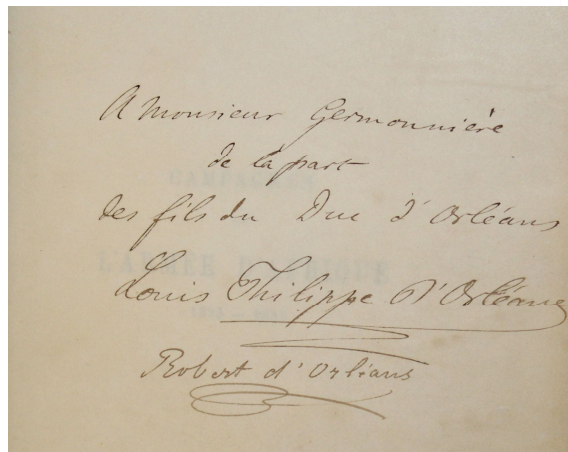 A Monsieur Germonnière
de la part
des fils du Duc d'Orléans
Louis Philippe d'Orléans
Robert d'Orléans